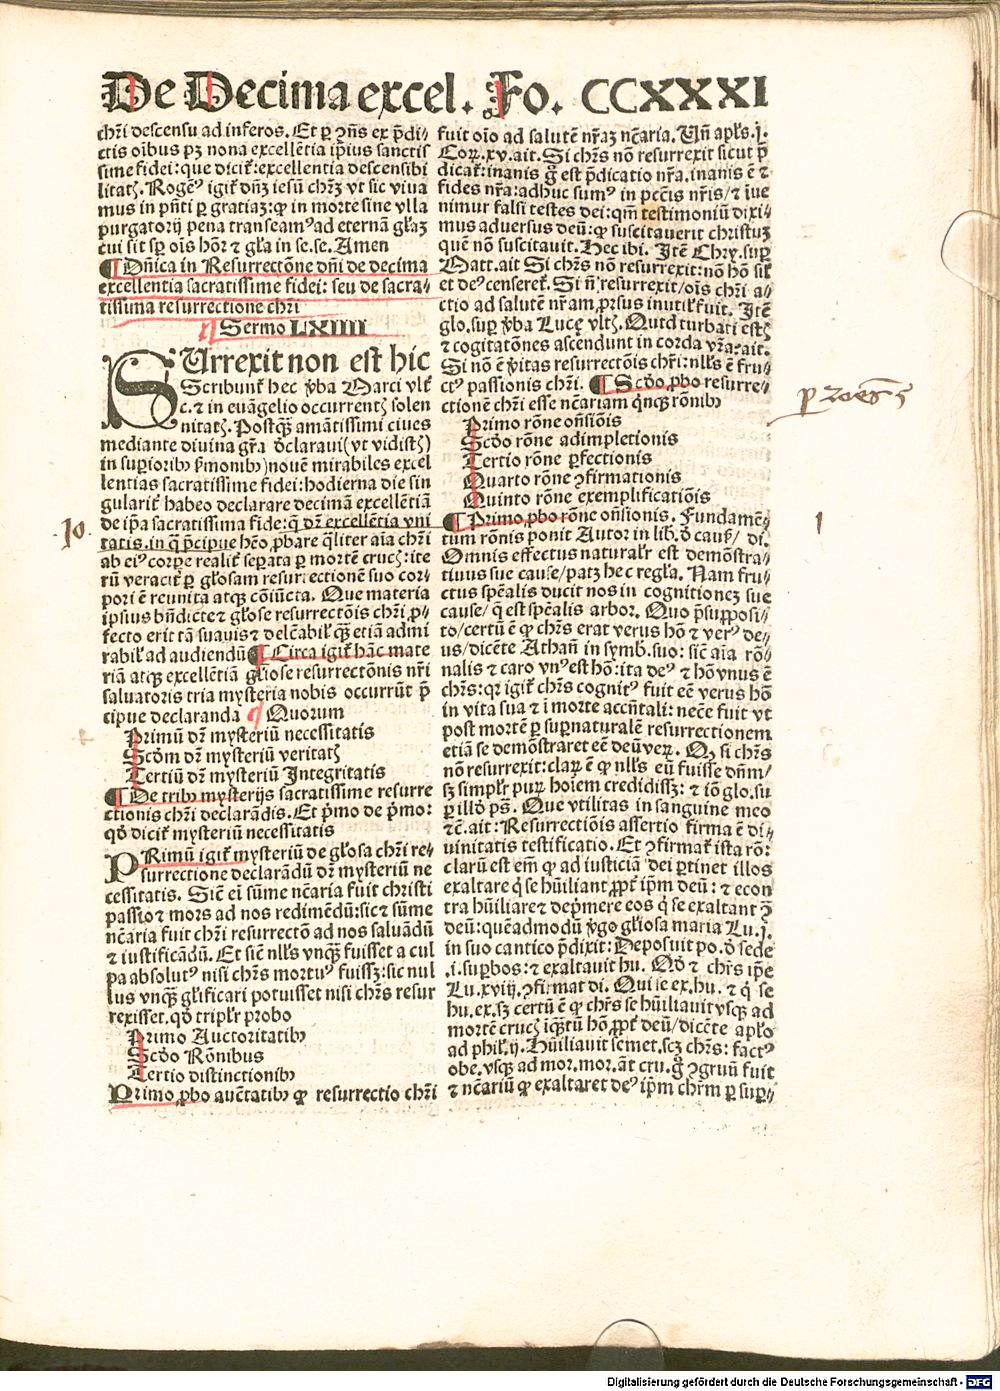 De Decima excel. Fo. CCXXXI
chꝛi descensu ad inferos. Et ꝑ ꝯñs ex p̄di⸗
ctis oĩbus pꝫ nona excellẽtia ip̄ius sanctis
sime fidei: que dicit̃: excellentia descensibi
litatꝭ. Rogemꝰ igit̃ dñꝫ iesũ chꝛꝫ vt sic viua
mus in p̄nti ꝑ gratiaꝫ: ꝙ in morte sine vlla
purgatorij pena transeamꝰ ad eternã gl̃aꝫ
cui sit sꝑ oĩs hõꝛ ⁊ gl̃a in se.se. Amen
¶ Dñica in Resurrectõne dñi de decima
excellentia sacratissime fidei: seu de sacra⸗
tissima resurrectione chꝛi
Sermo LXIIII
SUrrexit non est hic
Scribunt̃ hec ṽba Marci vlt̃
c. ⁊ in euãgelio occurrentꝭ solen
nitatꝭ. Postq̃ꝫ amãtissimi ciues
mediante diuina gr̃a d̃claraui (vt vidistꝭ)
in suꝑioribꝰ s̃monibꝰ) nouẽ mirabiles excel
lentias sacratissime fidei: hodierna die sin
gularit̃ habeo declarare decimã excellẽtiã
de ip̃a sacratissima fide: q̃ dꝛ excellẽtia vni
tatis. in q̃ p̃cipue hẽo ꝓbare q̃liter aĩa chꝛi
ab eiꝰ corꝑe realit̃ seꝑata ꝑ mortẽ crucꝭ: ite
rũ veracit̃ ꝑ gl̃osam resurrectionẽ suo cor⸗
pori ẽ reunita atqꝫ cõiũcta. Que materia
ipsius bñdicte ⁊ gl̃ose resurrectõis chꝛi ꝓ⸗
fecto erit tã suauis ⁊ delc̃abil̃ q̃ꝫ etiã admi
rabil̃ ad audiendũ ¶ Circa igit̃ hãc mate
riã atqꝫ excellẽtiã gl̃iose resurrectõnis nr̃i
saluatoris tria mysteria nobis occurrũt p̃
cipue declaranda ¶ Quorum
Primũ dꝛ mysteriũ necessitatis
Scd̃m dꝛ mysteriũ veritatꝭ
Tertiũ dꝛ mysteriũ Integritatis
¶ De tribꝰ mysterijs sacratissime resurre
ctionis chꝛi declarãdis. Et p̃mo de p̃mo:
qd̃ dicit̃ mysteriũ necessitatis
PRimũ igit̃ mysteriũ de gl̃osa chꝛi re⸗
surrectione declarãdũ dꝛ mysteriũ ne
cessitatis. Sic̃ ei sũme nc̃aria fuit christi
passio ⁊ mors ad nos redimẽdũ: sic ⁊ sũme
nc̃aria fuit chꝛi resurrectõ ad nos saluãdũ
⁊ iustificãdũ. Et sic̃ nll̃s vnq̃ꝫ fuisset a cul
pa absolutꝰ nisi chꝛ̃s mortuꝰ fuissꝫ: sic nul
lus vnq̃ꝫ gl̃ificari potuisset nisi chꝛ̃s resur
rexisset. qd̃ tripl̃r probo
Primo Auctoritatibꝰ
Scd̃o Rõnibus
Tertio distinctionibꝰ
Primo ꝓbo auc̃tatibꝰ ꝙ resurrectio chꝛi
fuit oĩo ad salutẽ nr̃aꝫ nc̃aria. Vñ apl̃s.j.
Coꝝ.xv.ait. Si chꝛ̃s nõ resurrexit sicut p̃
dicat̃: inanis g̃ est p̃dicatio nr̃a. inanis ẽ ⁊
fides nr̃a: adhuc sumꝰ in pc̃cis nr̃is/ ⁊ iue
nimur falsi testes dei: qm̃ testimoniũ dixi⸗
mus aduersus deũ: ꝙ suscitauerit christuꝫ
quẽ nõ suscitauit. Hec ibi. Itẽ Chꝛy.suꝑ
Matt.ait Si chꝛ̃s nõ resurrexit: nõ hõ sil̃
et deꝰ censeret̃. Si ñ resurrexit/ oĩs chꝛi a⸗
ctio ad salutẽ nr̃am ꝓrsus inutil̃ fuit. Itẽ
glo.suꝑ ṽba Luce vltꝭ. Quid turbati estꝭ
⁊ cogitatõnes ascendunt in corda vr̃a: ait.
Si nõ ẽ ṽitas resurrectõis chꝛi: nll̃s ẽ fru⸗
ctꝰ passionis chꝛi. ¶ Scd̃o ꝓbo resurre⸗
ctionẽ chꝛi esse nc̃ariam q̃nqꝫ rõnibꝰ
Primo rõne oñsiõis
Scd̃o rõne adimpletionis
Tertio rõne ꝑfectionis
Quarto rõne ꝯfirmationis
Quinto rõne exemplificatiõis
¶ Primo ꝓbo rõne oñsionis. Fundamẽ⸗
tum rõnis ponit Autor in lib. d̃ cauß/ di.
Omnis effectus natural̃r est demõstra⸗
tiuus sue cause/ patꝫ hec regl̃a. Nam fru⸗
ctus spẽalis ducit nos in cognitioneꝫ sue
cause/ q̃ est spẽalis arbor. Quo p̃supposi⸗
to/ certũ ẽ ꝙ chꝛ̃s erat verus hõ ⁊ verꝰ de⸗
us/ dicẽte Athañ in symb.suo: sic̃ aĩa rõ⸗
nalis ⁊ caro vnꝰ est hõ: ita deꝰ ⁊ hõ vnus ẽ
chꝛ̃s: qꝛ igit̃ chꝛ̃s cognitꝰ fuit eẽ verus hõ
in vita sua ⁊ i morte accñtali: necẽ fuit vt
post mortẽ ꝑ suꝑnaturalẽ resurrectionem
etiã se demõstraret eẽ deũ veꝝ. Qꝫ si chꝛ̃s
nõ resurrexit: claꝝ ẽ ꝙ nll̃s eũ fuisse dñm/
sꝫ simpl̃r puꝝ hoĩem credidissꝫ: ⁊ iõ glo.su
ꝑ ill̃d ps̃. Que vtilitas in sanguine meo
⁊c̃.ait: Resurrectiõis assertio firma ẽ di⸗
uinitatis testificatio. Et ꝯfirmat̃ ista rõ:
clarũ est em̃ ꝙ ad iusticiã dei ꝑtinet illos
exaltare q̃ se hũiliant ꝓpt̃ ip̃m deũ: ⁊ econ
tra hũiliare ⁊ dep̃mere eos q̃ se exaltant ꝯ̃
deũ: quẽadmodũ ṽgo gl̃iosa maria Lu.j.
in suo cantico p̃dixit: Deposuit po. d̃ sede
.i.suꝑbos: ⁊ exaltauit hu. Qd̃ ⁊ chꝛ̃s ip̃e
Lu.xviij.ꝯfirmat di. Qui se ex.hu. ⁊ q̃ se
hu.ex.sꝫ certũ ẽ ꝙ chꝛ̃s se hũiliauit vsqꝫ ad
mortẽ crucꝭ iq̃ꝫtũ hõ ꝓpt̃ deũ/ dicẽte apl̃o
ad phil̃.ij. Hũiliauit semet.scꝫ chꝛ̃s: factꝰ
obe.vsqꝫ ad mor.mor.ãt cru. g̃ ꝯgruũ fuit
⁊ nc̃ariũ ꝙ exaltaret deꝰ ip̃m chꝛ̃m ꝑ suꝑ⸗
.10.
1
Digitalisierung gefördert durch die Deutsche Forschungsgemeinschaft - DFG